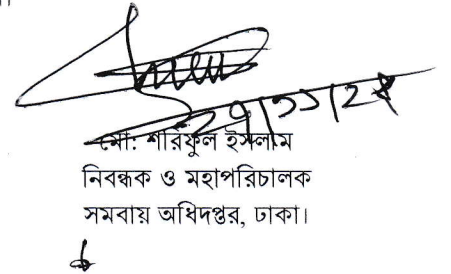 মো: শরিফুল ইসলাম
নিবন্ধক ও মহাপরিচালক
সমবায় অধিদপ্তর, ঢাকা।